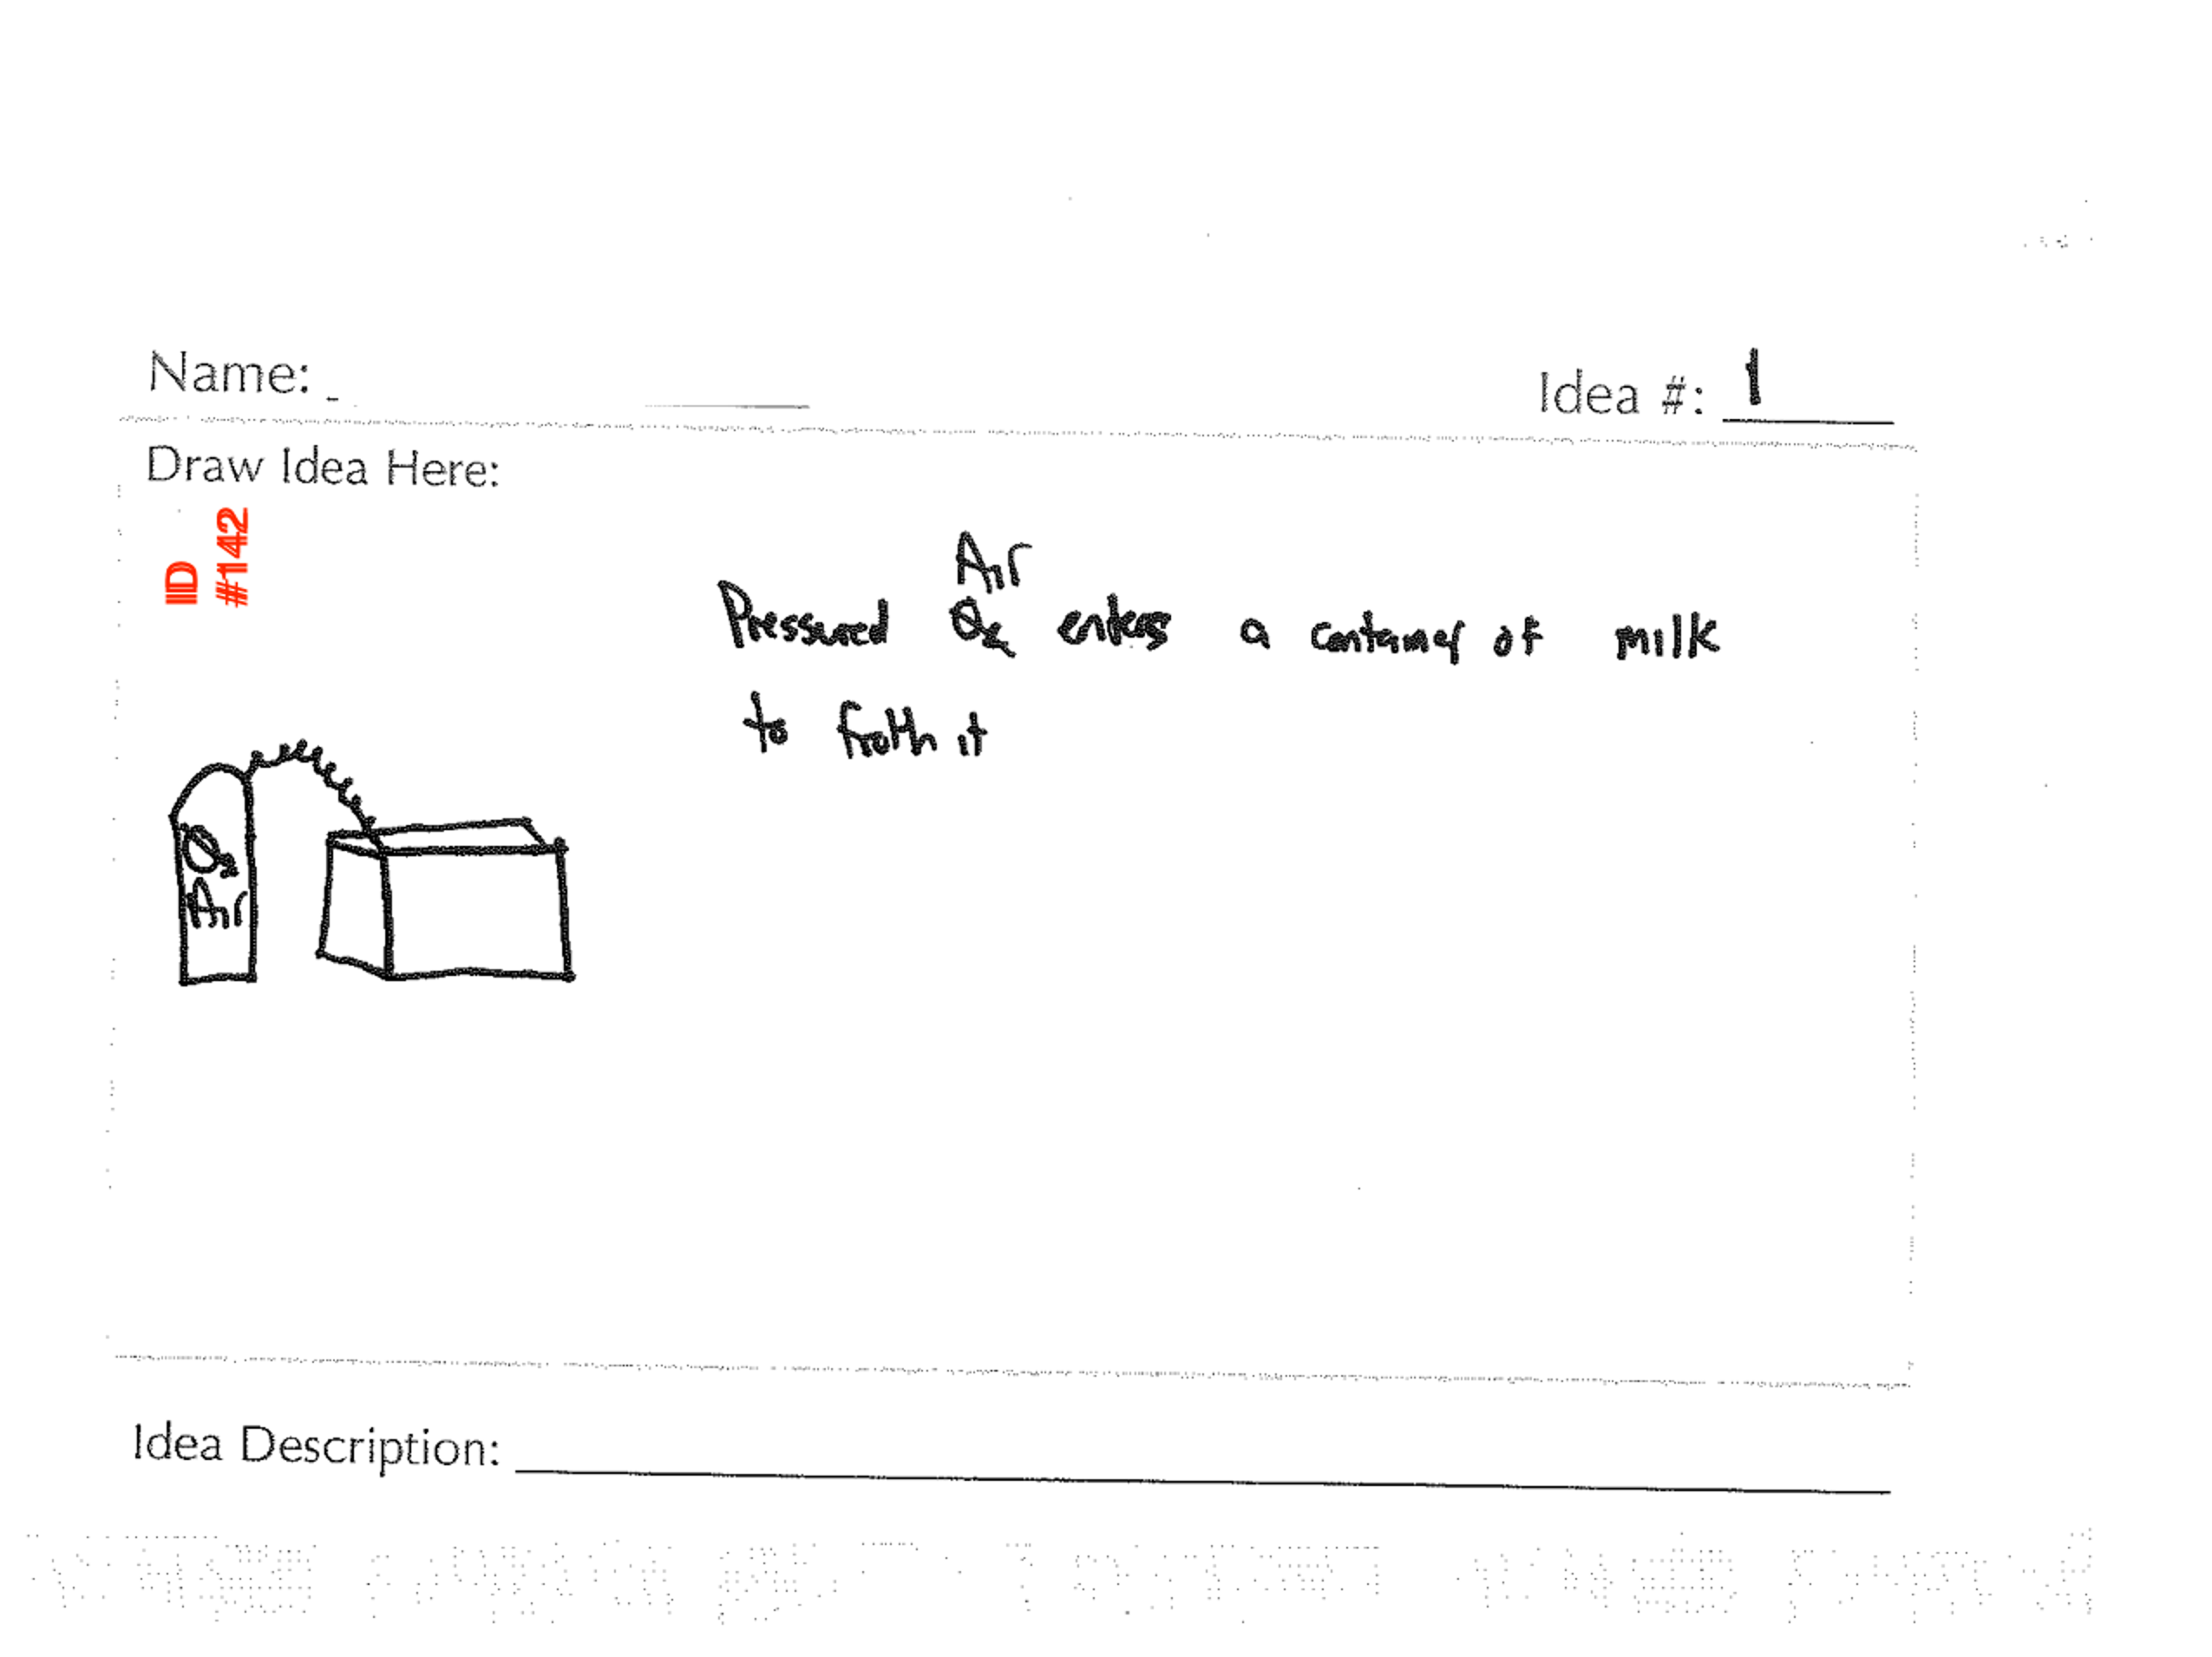 Name:
Idea #: 1
Draw Idea Here:
ID
#142
Air
Pressured O2 enters a container of milk
to froth it
O2
Air
Idea Description: